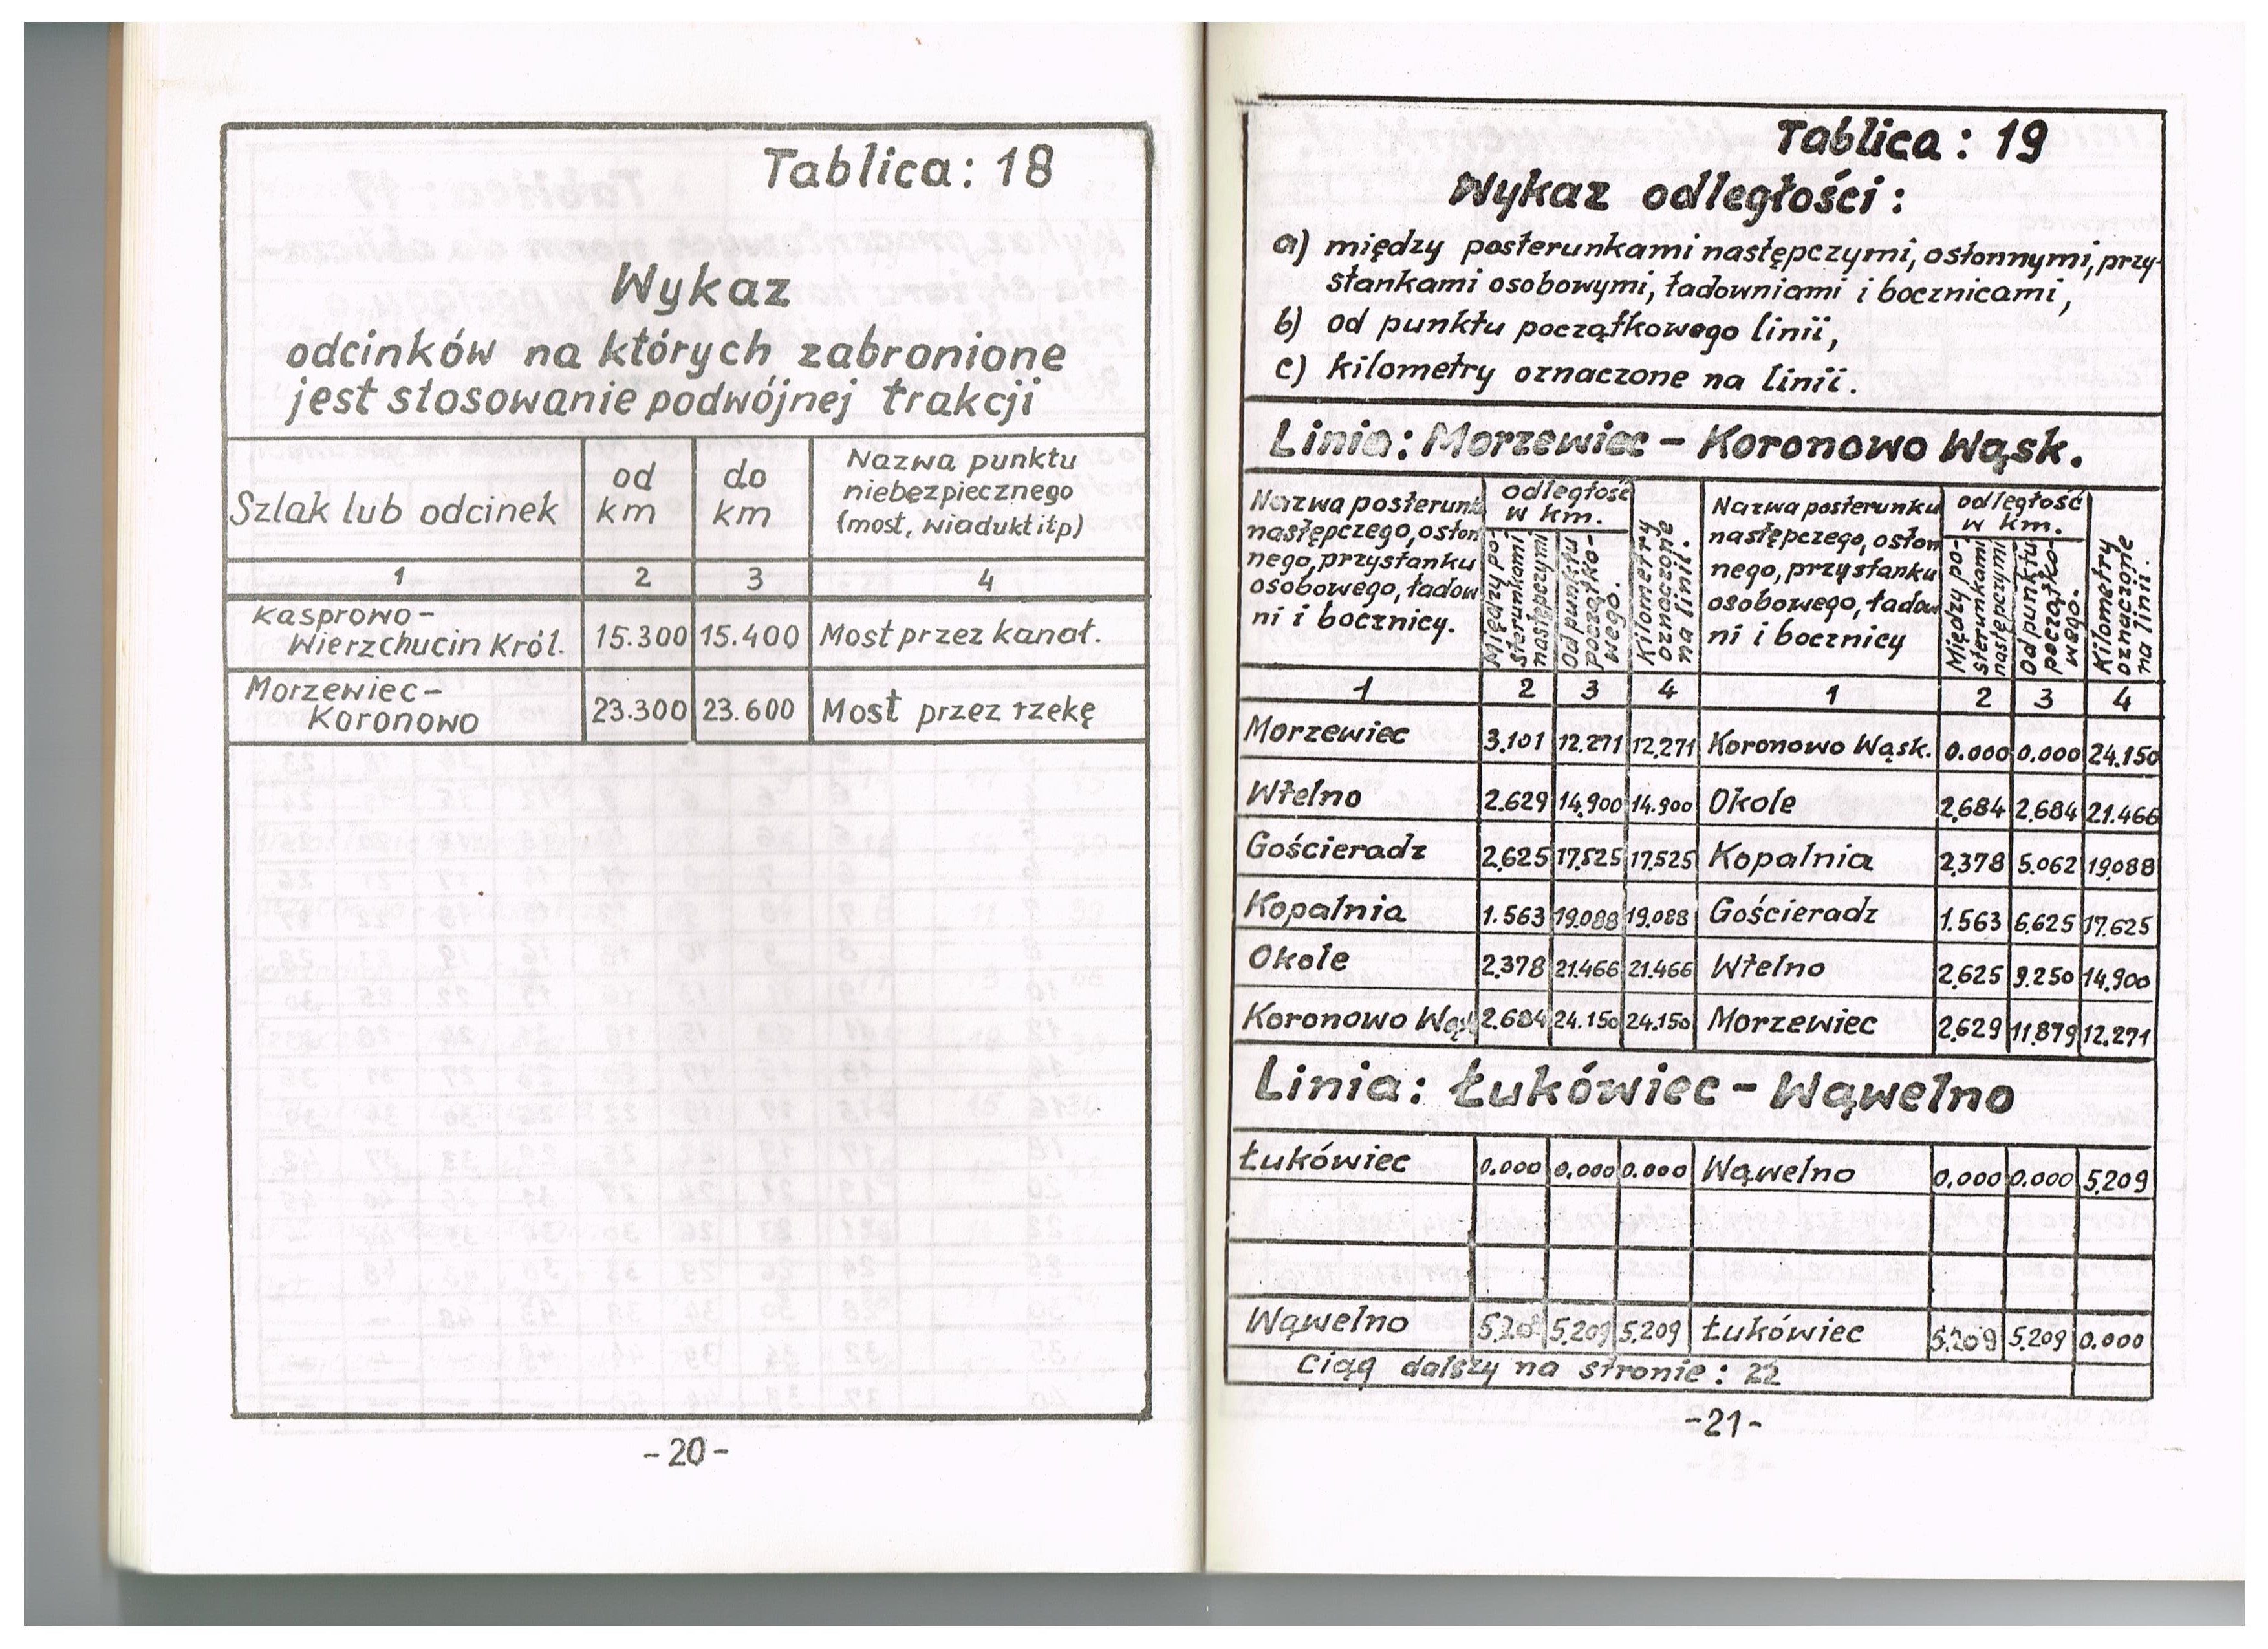 Tablica: 18
Wykaz
odcinków na których zabronione
jest stosowanie podwójnej trakcji
Szlak lub odcinek
od
km
do
km
Nazwa punktu
niebezpiecznego
(most, wiadukt itp)
1 2 3 4
Kasprowo-
Wierzchucin Król. 15.300 15.400 Most przez kanał.
Morzewiec-
Koronowo 23.300 23.600 Most przez rzekę
-20-
Tablica: 19
Wykaz odległości:
a) między posterunkami następczymi, osłonnymi, przy-
stankami osobowymi, ładowniami i bocznicami,
b) od punktu początkowego linii,
c) kilometry oznaczone na linii.
Linia: Morzewiec - Koronowo Wąsk.
Nazwa posterunk
następczego, osłon
nego, przystanku
osobowego, ładow
ni i bocznicy.
odległość
w km.
Między po-
sterunkami
następczymi
Od punktu
początko-
wego.
Kilometry
oznaczone
na linii.
Nazwa posterunku
następczego, osłon
nego, przystanku
osobowego, ładow
ni i bocznicy
odległość
w km.
Między po-
sterunkami
następczymi
Od punktu
początko-
wego.
Kilometry
oznaczone
na linii.
1 2 3 4 1 2 3 4
Morzewiec 3.101 12.271 12.271 Koronowo Wąsk. 0.000 0.000 24.150
Wtelno 2.629 14.900 14.900 Okole 2.684 2.684 21.466
Gościeradz 2.625 17.525 17.525 Kopalnia 2.378 5.062 19.088
Kopalnia 1.563 19.088 19.088 Gościeradz 1.563 6.625 17.625
Okole 2.378 21.466 21.466 Wtelno 2.625 9.250 14.900
Koronowo Wąs 2.684 24.150 24.150 Morzewiec 2.629 11.879 12.271
Linia: Łukówiec - Wąwelno
Łukówiec 0.000 0.000 0.000 Wąwelno 0.000 0.000 5.209
Wąwelno 5.209 5.209 5.209 Łukówiec 5.209 5.209 0.000
ciąg dalszy na stronie: 22
-21-